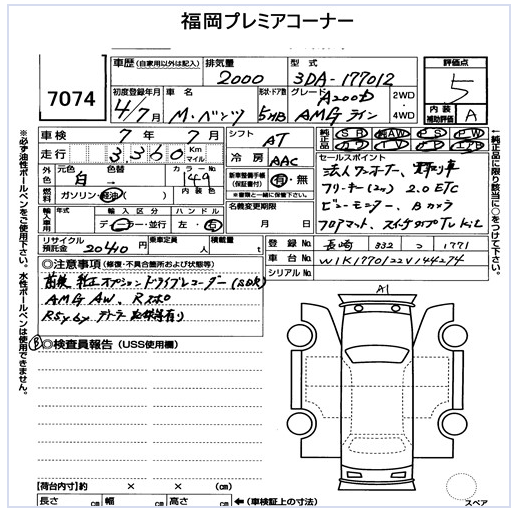 福岡プレミアコーナー
7074
車歴 (自家用以外は記入)
排気量 2000
型式 3DA-177012
評価点 5
初度登録年月 4/7 月
車名 M・ベンツ
形状・ドア数 5HB
グレード A200D AMGライン
2WD・4WD
内装補助評価 A
車検 7年7月
シフト AT
純正品 SR AW PS PW
走行 3,360 Km マイル
冷房 AAC
外色 元色 白 色替
カラーNo 149
燃料 ガソリン・軽油
内装色
新車整備手帳(保証書付) 有・無
※書類と一緒に保管
セールスポイント
法人ワンオーナー、
フリーナー(2つ) 2.0 ETC
ビューモニター、Bカメラ
フロアマット、
輸入車用 年式
輸入区分 ディーラー・並行
ハンドル 左・右
名義変更期限 月 日
リサイクル預託金 20410 円
乗車定員 人
積載量 t
登録No 長崎 332 つ 1771
車台No W1K1770122V144274
シリアルNo
◎注意事項 (修復・不具合箇所および状態等)
前後 純正オプションドライブレコーダー(SDK)
AMG AW、Rスポ
R5y6y ディーラー 取扱等有り
A1
◎検査員報告 (USS使用欄)
【荷台内寸】約 × × (cm)
長さ cm 幅 cm 高さ cm ←(車検証上の寸法)
スペア
※必ず油性ボールペンをご使用下さい。水性ボールペンは使用できません。
←純正品に限り該当に○をつけて下さい。